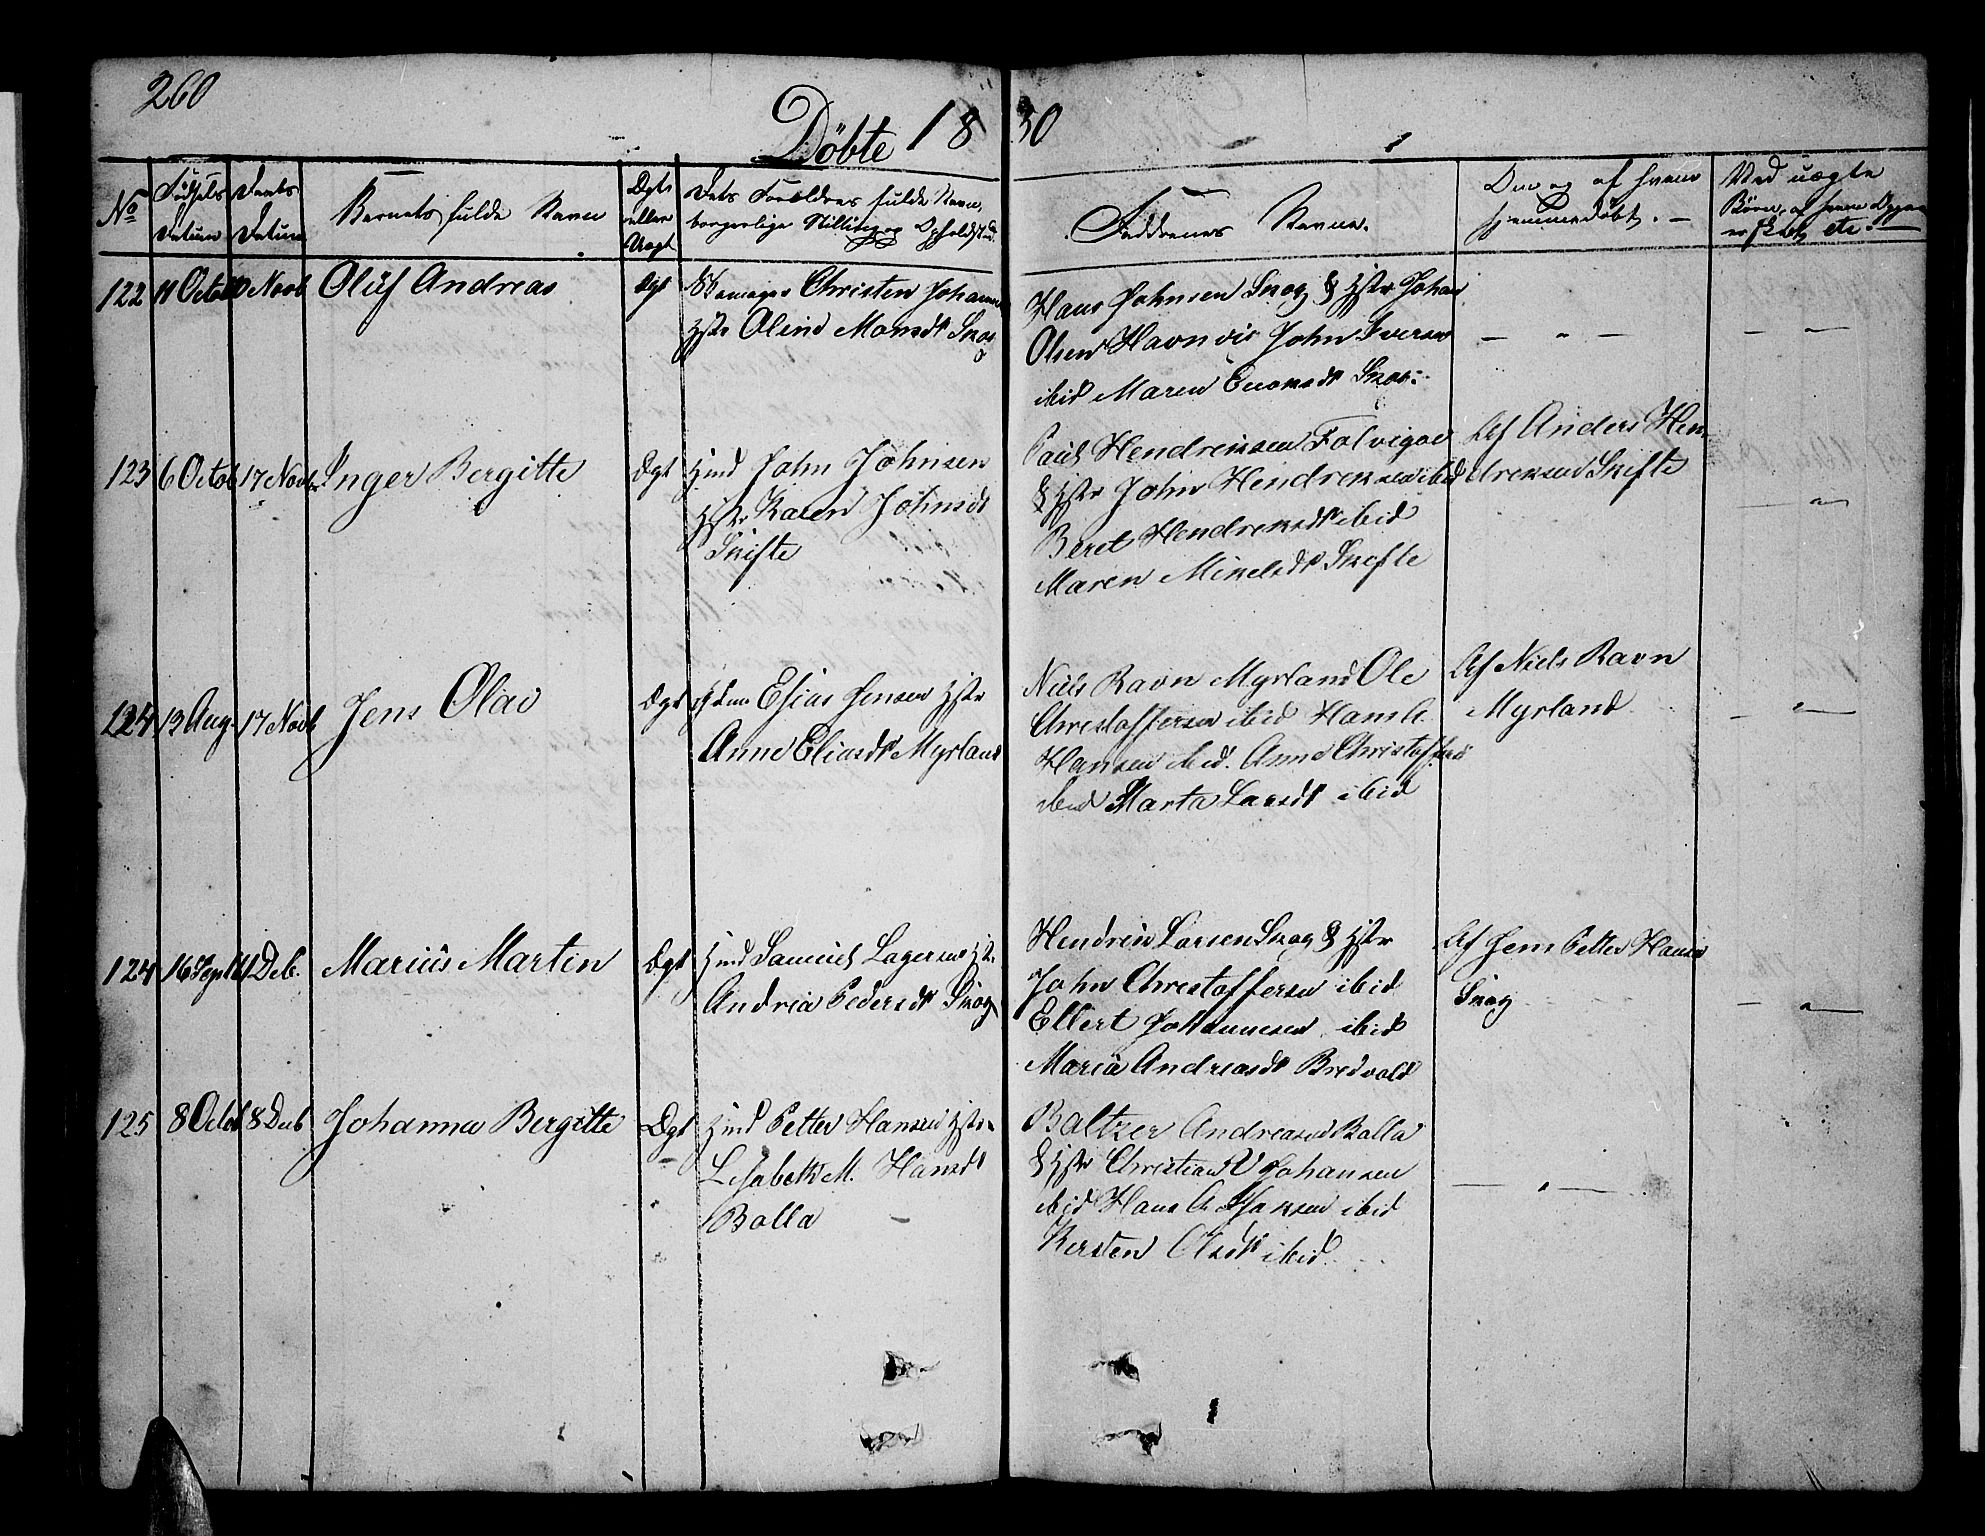 260
Döbte 18 30
No
Födsels Datum
Daabs Datum
Barnets fulde Navn
Dgts eller Uægt
Dets Forældres fulde Navn,
borgerlige Stilling og Opholdsst.
Faddrenes Navne.
Om og af hvem
hjemmedöbt. —
Ved uægte
Börn, af hvem
etc. —
122 11 Octob Novb Oluf Andreas Dgt Christen Johanne
Hstr Oline Monsdt Skog
Hans Johnsen Skog & Hstr Johan
Olsen Havnvig John Iversen
ibid Maren Enoksdt Skog.
123 6 Octob 17 Novb Inger Bergitte Dgt Hmd John Johnsen
Hstr Karen Johnsdt
Skifte
Paul Hendreksen Folvigoe
& Hstr John Hendreksen ibid
Beret Hendreksdt ibid
Maren Mikelsdt Skifte
Af Anders Hen-
dreksen Skifte
124 13 Aug. 17 Novb Jens Olai Dgt Esias Jensen Hstr
Anne Eliasdt Myrland
Niels Ravn Myrland Ole
Christoffersen ibid Hans A.
Hansen ibid. Anne Christoffers
ibid Marta Larsdt ibid
Af Niels Ravn
Myrland
124 16 Sept 11 Deb. Marius Martin Dgt Hmd Samuel Lagersen Hst.
Andria Pedersdt Skog
Hendrik Larsen Skog & Hstr
John Christoffersen ibid
Ellert Johannesen ibid
Maria Andreasdt Bredvold
Af Jens Petter Hans
Skog
125 8 Octob 8 Deb Johanna Bergitte Dgt Hmd Petter Hansen Hstr
Lisabeth M. Hansdt
Balla
Baltzer Andreasen Balla
& Hstr Christian U Johansen
ibid Hans A Hansen ibid
Kersten Olsdt ibid